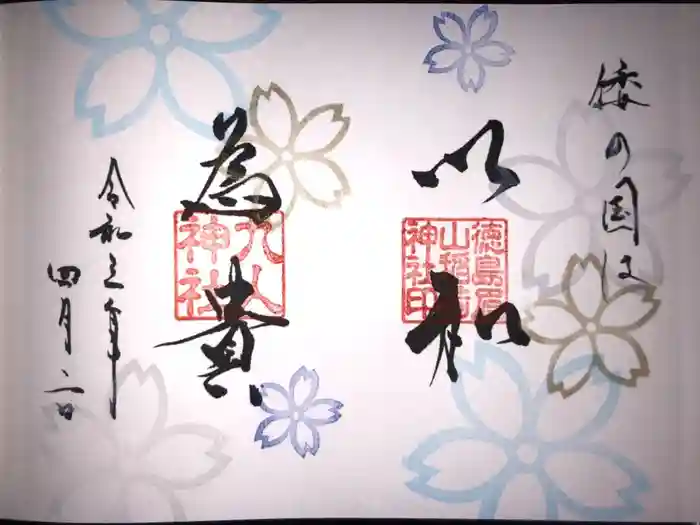 倭の国は
以和
徳島眉
山稲荷
神社印
為貴
九八
神社
令和三年
四月二日